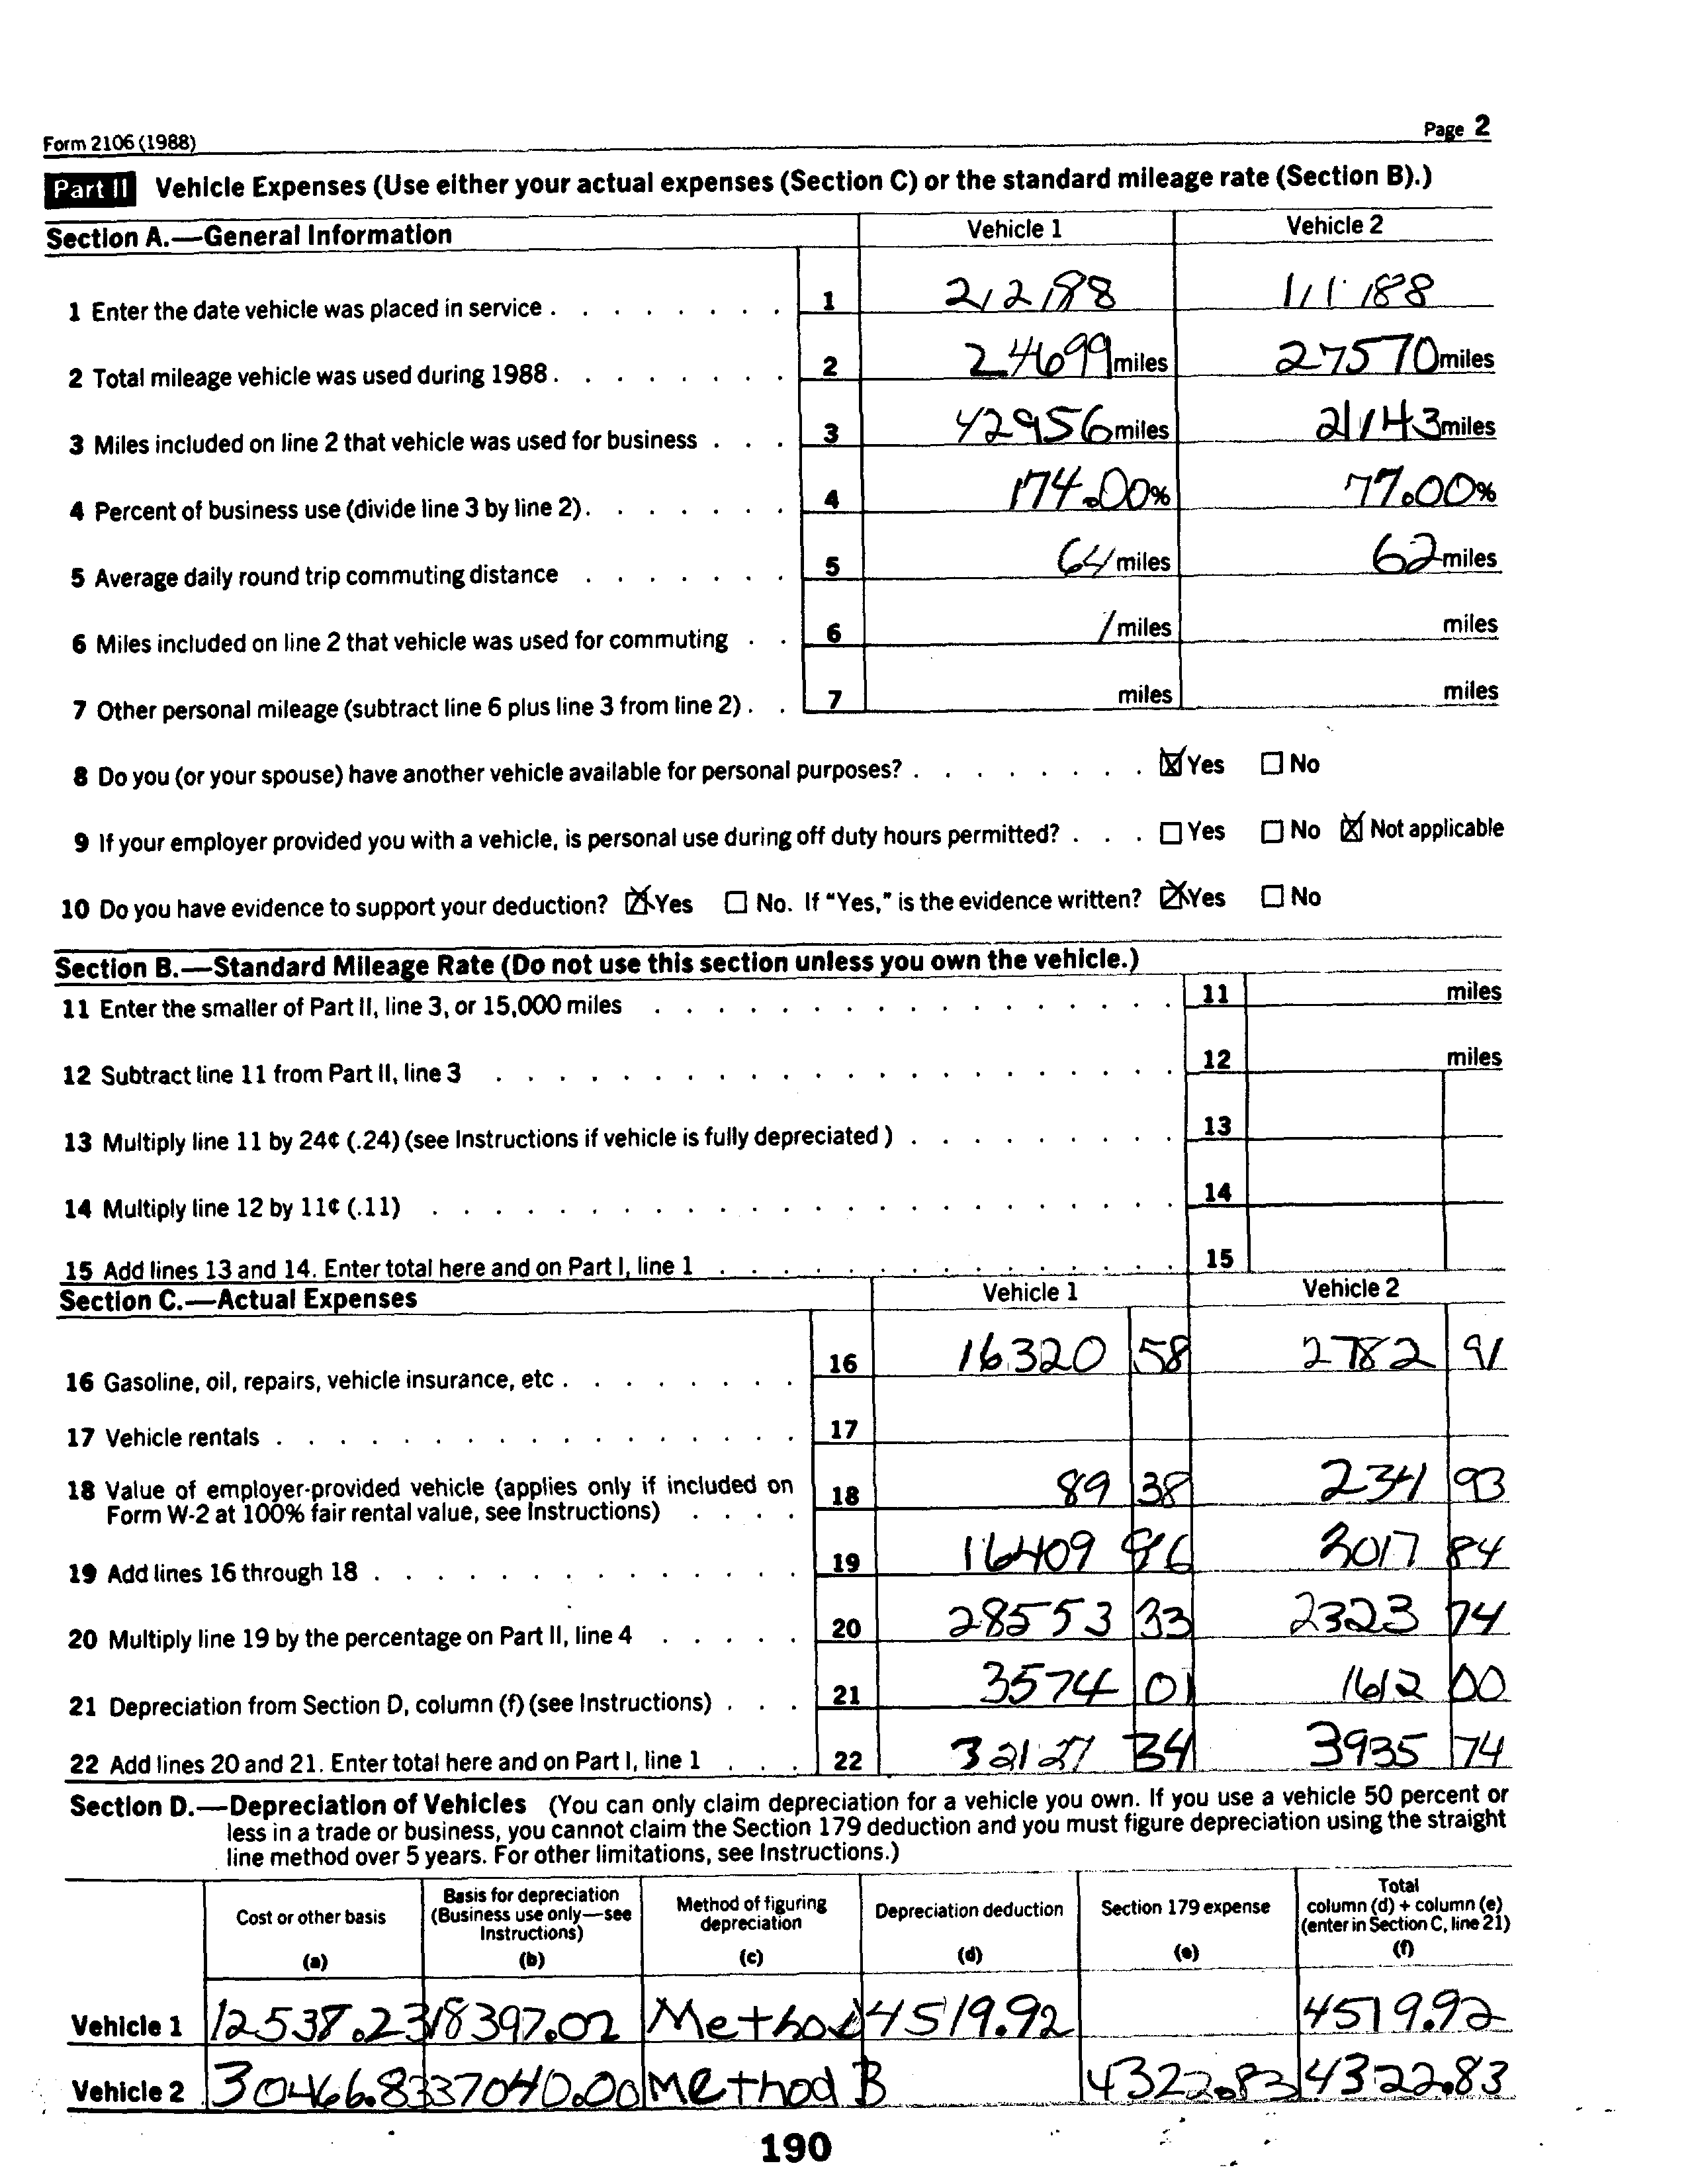 Form 2106 (1988) Page 2
Part II Vehicle Expenses (Use either your actual expenses (Section C) or the standard mileage rate (Section B).)
Section A.—General Information Vehicle 1 Vehicle 2
1 Enter the date vehicle was placed in service . . . . . . . . 1 2/2/88 1/1/88
2 Total mileage vehicle was used during 1988 . . . . . . . . 2 24699 miles 27570 miles
3 Miles included on line 2 that vehicle was used for business . . . 3 42956 miles 21143 miles
4 Percent of business use (divide line 3 by line 2) . . . . . . . 4 174.00% 77.00%
5 Average daily round trip commuting distance . . . . . . . 5 64 miles 62 miles
6 Miles included on line 2 that vehicle was used for commuting . . 6 / miles miles
7 Other personal mileage (subtract line 6 plus line 3 from line 2) . . 7 miles miles
8 Do you (or your spouse) have another vehicle available for personal purposes? . . . . . . . . ☒ Yes ☐ No
9 If your employer provided you with a vehicle, is personal use during off duty hours permitted? . . . ☐ Yes ☐ No ☒ Not applicable
10 Do you have evidence to support your deduction? ☒ Yes ☐ No. If "Yes," is the evidence written? ☒ Yes ☐ No
Section B.—Standard Mileage Rate (Do not use this section unless you own the vehicle.)
11 Enter the smaller of Part II, line 3, or 15,000 miles . . . . . . . . 11 miles
12 Subtract line 11 from Part II, line 3 . . . . . . . . 12 miles
13 Multiply line 11 by 24¢ (.24) (see Instructions if vehicle is fully depreciated) . . . . . . . . 13
14 Multiply line 12 by 11¢ (.11) . . . . . . . . 14
15 Add lines 13 and 14. Enter total here and on Part I, line 1 . . . . . . . . 15
Section C.—Actual Expenses Vehicle 1 Vehicle 2
16 Gasoline, oil, repairs, vehicle insurance, etc . . . . . . . . 16 16320 58 2782 91
17 Vehicle rentals . . . . . . . . 17
18 Value of employer-provided vehicle (applies only if included on
Form W-2 at 100% fair rental value, see Instructions) . . . . 18 89 38 234 93
19 Add lines 16 through 18 . . . . . . . . 19 16409 96 3017 84
20 Multiply line 19 by the percentage on Part II, line 4 . . . . . 20 28553 33 2323 74
21 Depreciation from Section D, column (f) (see Instructions) . . . 21 3574 01 1612 00
22 Add lines 20 and 21. Enter total here and on Part I, line 1 . . . 22 32127 34 3935 74
Section D.—Depreciation of Vehicles (You can only claim depreciation for a vehicle you own. If you use a vehicle 50 percent or
less in a trade or business, you cannot claim the Section 179 deduction and you must figure depreciation using the straight
line method over 5 years. For other limitations, see Instructions.)
Cost or other basis (a) Basis for depreciation (Business use only—see Instructions) (b) Method of figuring depreciation (c) Depreciation deduction (d) Section 179 expense (e) Total column (d) + column (e) (enter in Section C, line 21) (f)
Vehicle 1 12538.23 18397.02 Method 4519.92 4519.92
Vehicle 2 30466.83 37040.00 Method B 4322.83 4322.83
190